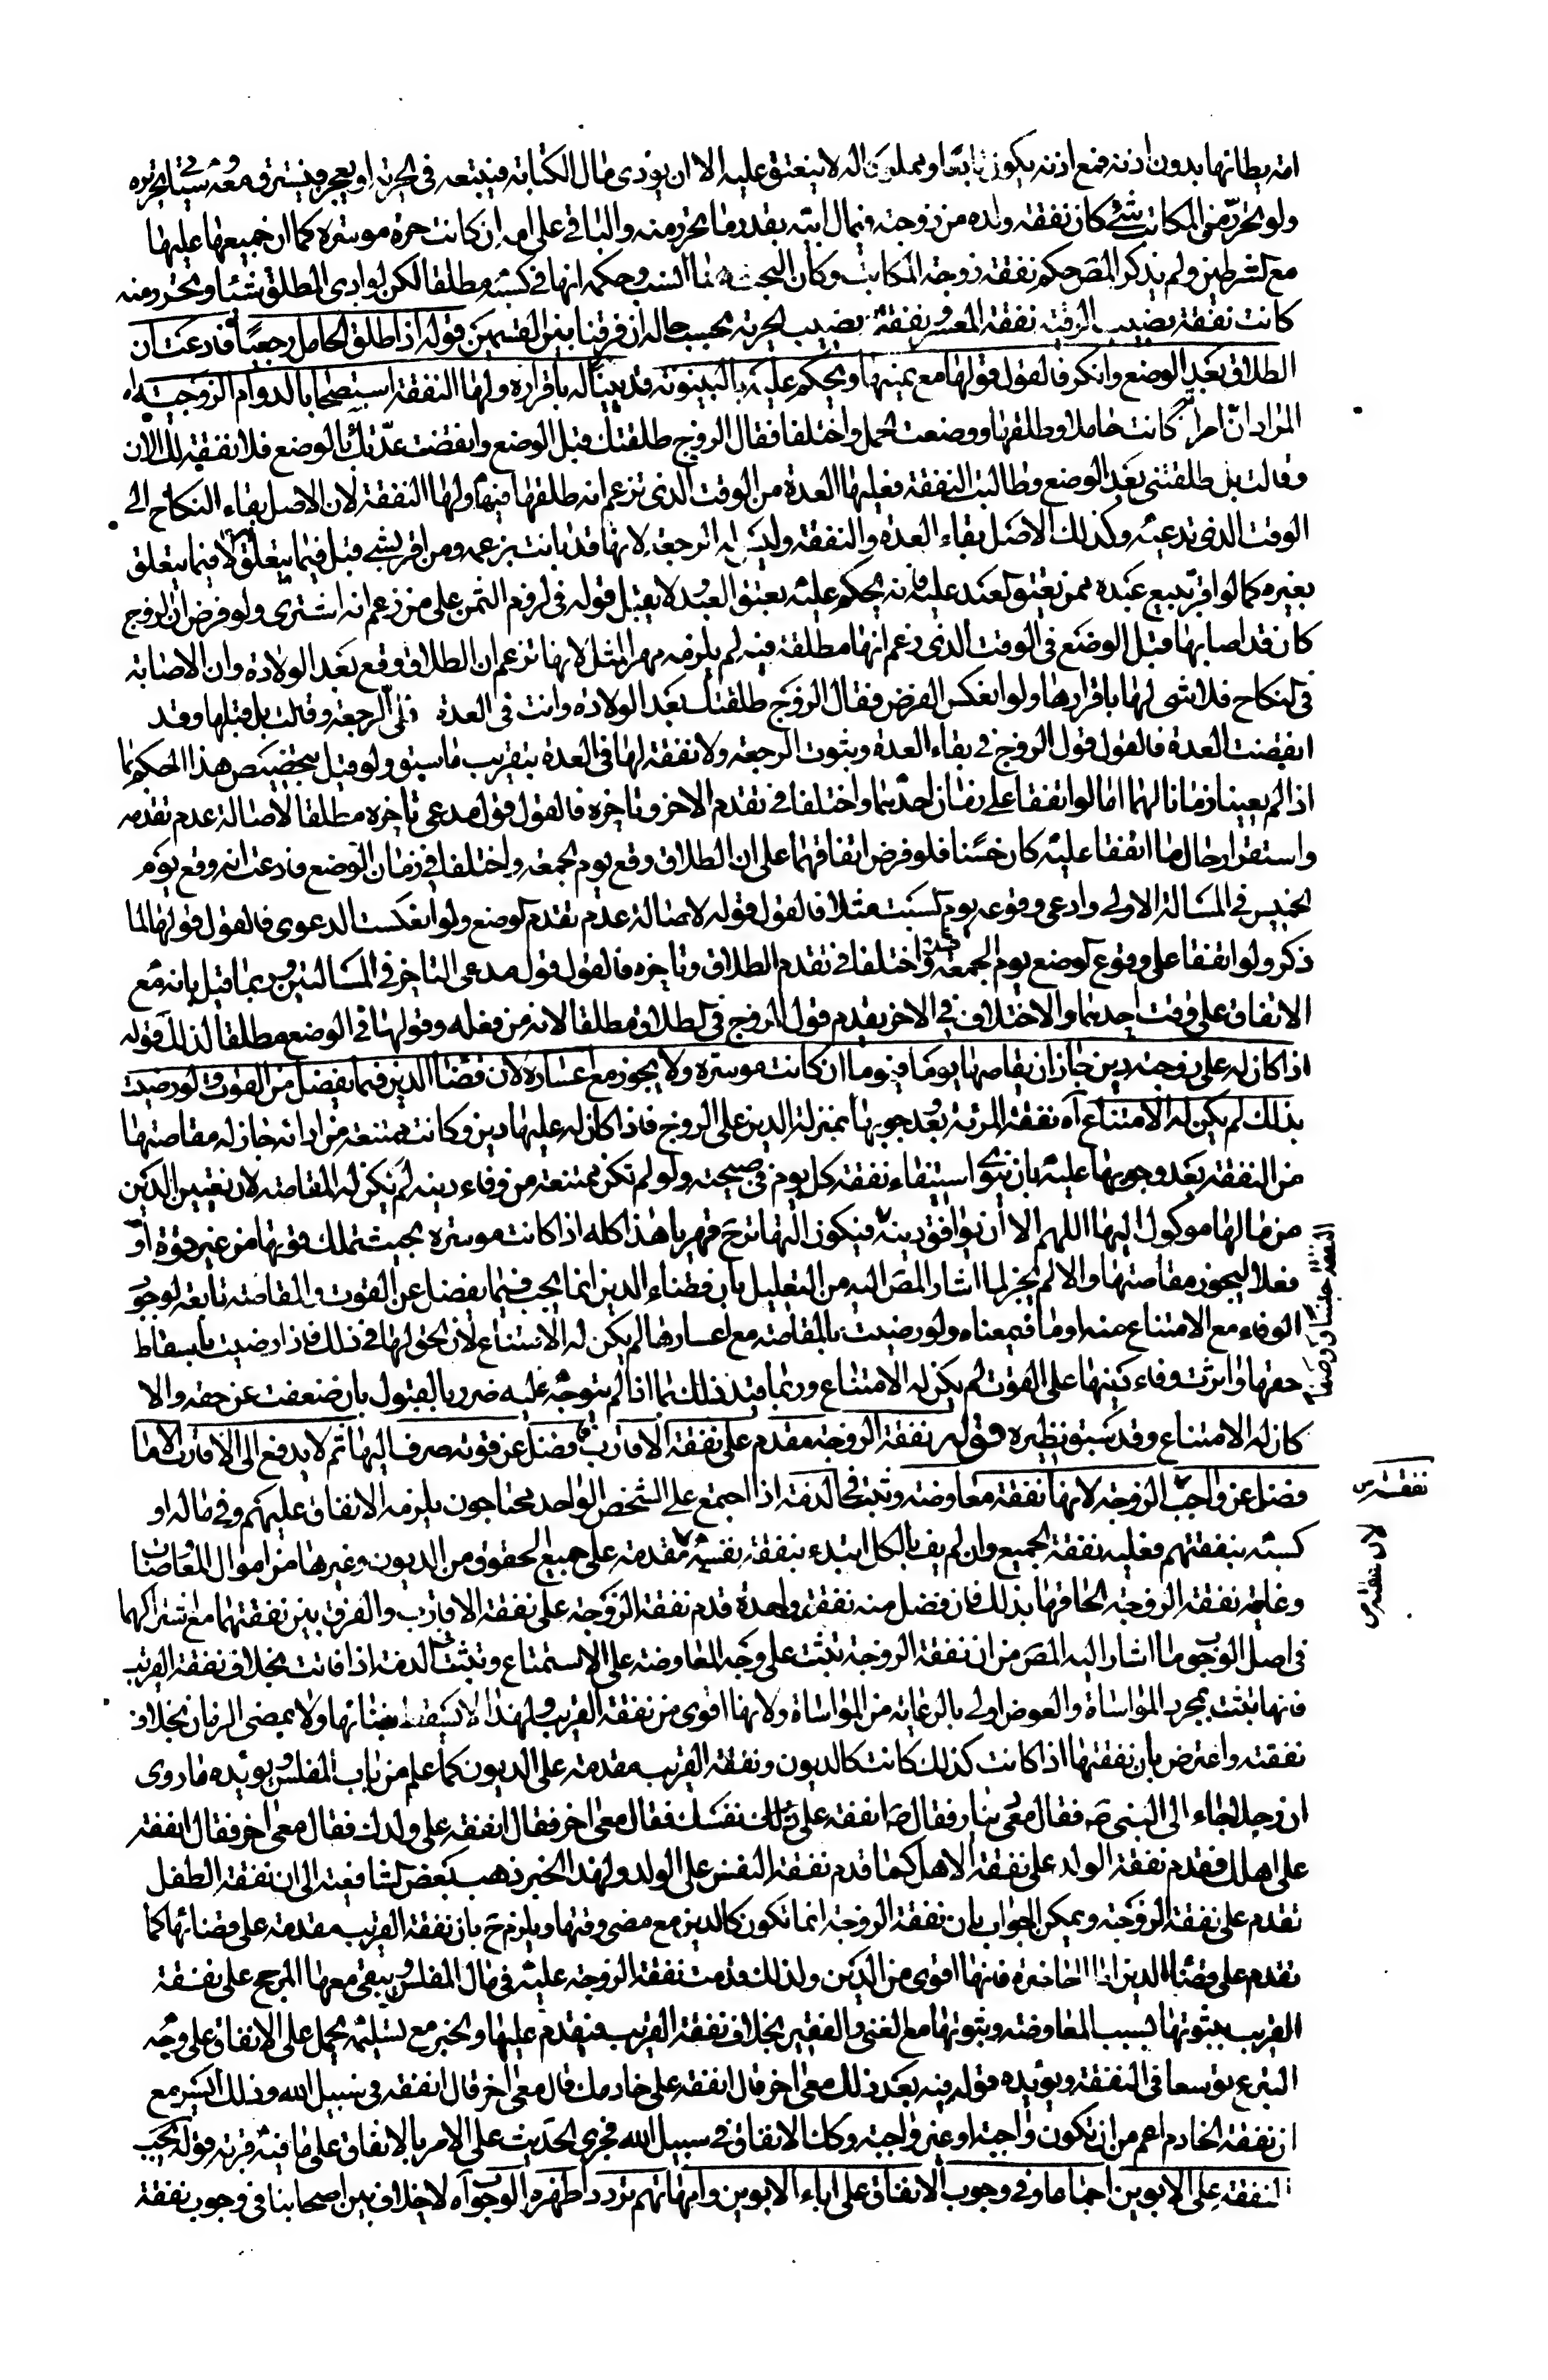 امته بطانها بدون اذنه فمع اذنه يكون ثابتا ومملوكا له لا ينعتق عليه الا ان يؤدى مال الكتابة فيتبعه فى الحرية او يعجز فيسترق ومعه
ولو تحرر من المكاتب شئ كان نفقة ولده من زوجته فى مال ابيه بقدر ما تحرر منه والباقى على امه ان كانت حرة موسرة كما ان جميعها عليها
مع الشرطين ولم يذكر المص حكم نفقة زوجة المكاتب وكان البحث هنا انسب وحكمه انها فى كسبه مطلقا لكن لو ادى المطلق شيئا وتحرر منه
كانت نفقة نصيب الرقية نفقة المعسر ونفقة نصيب الحرية بحسب حاله ان فرقنا بين القسمين قوله اذا طلق الحامل رجعيا فادعت ان
الطلاق بعد الوضع وانكر فالقول قولها مع يمينها ويحكم عليه بالبينونة تديينا له باقراره ولها النفقة استصحابا لدوام الزوجية اه
المراد ان امراة كانت حاملا وطلقها ووضعت الحمل واختلفا فقال الزوج طلقتك قبل الوضع وانقضت عدتك بالوضع فلا نفقة لك الان
وقالت بل طلقتنى بعد الوضع وطالبت النفقة فعليها العدة من الوقت الذى تزعم انه طلقها فيها ولها النفقة لان الاصل بقاء النكاح الى
الوقت الذى تدعيه وكذلك الاصل بقاء العدة والنفقة وليس له الرجعة لانها قد بانت بزعمه ومن اقر بشئ قبل فيما يتعلق به لا فيما يتعلق
بغيره كما لو اقر ببيع عبده ممن يعتق العبد عليه فانه يحكم عليه بعتق العبد ولا يقبل قوله فى لزوم الثمن على من زعم انه اشترى ولو فرض ان الزوج
كان قد اصابها قبل الوضع فى الوقت الذى زعم انها مطلقة فيه لم يلزمه مهر المثل لانها تزعم ان الطلاق وقع بعد الولادة وان الاصابة
فى النكاح فلا شئ لها باقرارها ولو انعكس الفرض فقال الزوج طلقتك بعد الولادة وانت فى العدة فلى الرجعة وقالت بل قبلها وقد
انقضت العدة فالقول قول الزوج فى بقاء العدة وثبوت الرجعة ولا نفقة لها فى العدة بتقريب ما سبق ولو قيل بتخصيص هذا الحكم بما
اذا لم يعينا زمانا لهما اما لو اتفقا على زمان احدهما واختلفا فى تقدم الاخر وتاخره فالقول قول مدعى تاخره مطلقا لاصالة عدم تقدمه
واستقرار حال ما اتفقا عليه كان حسنا فلو فرض اتفاقهما على ان الطلاق وقع يوم الجمعة واختلفا فى زمان الوضع فادعت انه وقع يوم
الخميس فى المسالة الاولى وادعى وقوعه يوم السبت مثلا فالقول قوله لاصالة عدم تقدم الوضع ولو انعكست الدعوى فالقول قولها لما
ذكر ولو اتفقا على وقوع الوضع يوم الجمعة واختلفا فى تقدم الطلاق وتاخره فالقول قول مدعى التاخر فى المسالتين وربما قيل بانه مع
الاتفاق على وقت احدهما والاختلاف فى الاخر يقدم قول الزوج فى الطلاق مطلقا لانه من فعله وقولها فى الوضع مطلقا لذلك قوله
اذا كان له على زوجته دين جاز ان يقاصها يوما فيوما ان كانت موسرة ولا يجوز مع اعسارها لان قضاء الدين فيما يفضل من القوت ولو رضيت
بذلك لم يكن له الامتناع اه نفقة المراة بعد وجوبها بمنزلة الدين على الزوج فاذا كان له عليها دين وكانت ممتنعة من ادائه جاز له مقاصتها
من النفقة بعد وجوبها عليه بان ينوى استيفاء نفقة كل يوم فى صبيحته ولو لم تكن ممتنعة من وفاء دينه لم يكن له المقاصة لان تعيين الدين
من مالها موكول اليها اللهم الا ان يوافق دينه فيكون التهاتر ح قهريا هذا كله اذا كانت موسرة بحيث تملك قوتها من غير قوة او
فعلا ليجوز مقاصتها والا لم يجز لما اشار المص اليه من التعليل بان قضاء الدين انما يجب فيما يفضل عن القوت والمقاصة تابعة لوجوب
الوفاء مع الامتناع منه او ما فى معناه ولو رضيت بالمقاصة مع اعسارها لم يكن له الامتناع لان الحق لها فى ذلك فاذا رضيت باسقاط
حقها واثرت وفاء دينها على القوت لم يكن له الامتناع وربما قيد ذلك بما اذا لم يتوجه عليه ضرر بالقبول بان ضعفت عن حقه والا
كان له الامتناع وقد سبق نظيره قوله نفقة الزوجة مقدم على نفقة الاقارب فما فضل عن قوته صرف اليها ثم لا يدفع الى الاقارب الا ما
فضل عن واجب الزوجة لانها نفقة معاوضة وتثبت فى الذمة اذا اجتمع على الشخص الواحد محتاجون يلزمه الانفاق عليهم وفى ماله او
كسبه بنفقتهم فعليه نفقة الجميع وان لم يف بالكل ابتدء بنفقة نفسه مقدمة على جميع الحقوق من الديون وغيرها من اموال المعاوضات
وعامة نفقة الزوجة الحاقها بذلك فان فضل منه نفقة واحدة قدم نفقة الزوجة على نفقة الاقارب والفرق بين نفقتهما مع اشتراكهما
فى اصل الوجوب ما اشار اليه المص من ان نفقة الزوجة تثبت على وجه المعاوضة على الاستمتاع وتثبت فى الذمة اذا فاتت بخلاف نفقة القريب
فانها تثبت بمجرد المواساة والعوض اولى بالرعاية من المواساة ولانها اقوى من نفقة القريب ولهذا لا يسقط بغنائها ولا بمضى الزمان بخلاف
نفقته واعترض بان نفقتها اذا كانت كذلك كانت كالديون ونفقة القريب مقدمة على الديون كما علم من باب المفلس ويؤيده ما روى
ان رجلا جاء الى النبى ص فقال معى دينار فقال ص انفقه على نفسك فقال معى اخر فقال انفقه على ولدك فقال معى اخر فقال انفقه
على اهلك فقدم نفقة الولد على نفقة الاهل كما قدم نفقة النفس على الولد ولهذا الخبر ذهب بعض الشافعية الى ان نفقة الطفل
تقدم على نفقة الزوجة ويمكن الجواب بان نفقة الزوجة انما تكون كالدين مع مضى وقتها ويلزم ح بان نفقة القريب مقدمة على قضائها كما
تقدم على قضاء الدين اما الحاضرة فانها اقوى من الدين ولذلك قدمت نفقة الزوجة عليه فى مال المفلس ويبقى معها المرجح على نفقة
القريب بثبوتها بسبب المعاوضة وبثبوتها مع الغنى والفقير بخلاف نفقة القريب فيقدم عليها والخبر مع تسليمه يحمل على الانفاق على وجه
التبرع توسعا فى النفقة ويؤيده قوله فيه بعد ذلك معى اخر قال انفقه على خادمك قال معى اخر قال انفقه فى سبيل الله وذلك ايسر مع
ان نفقة الخادم اعم من ان تكون واجبة او غير واجبة وكذا الانفاق فى سبيل الله فجرى الحديث على الامر بالانفاق على ما فيه قربة قوله تجب
النفقة على الابوين اجماعا وفى وجوب الانفاق على اباء الابوين وامهاتهم تردد اظهره الوجوب اه لا خلاف بين اصحابنا فى وجوب نفقة
نفقته س